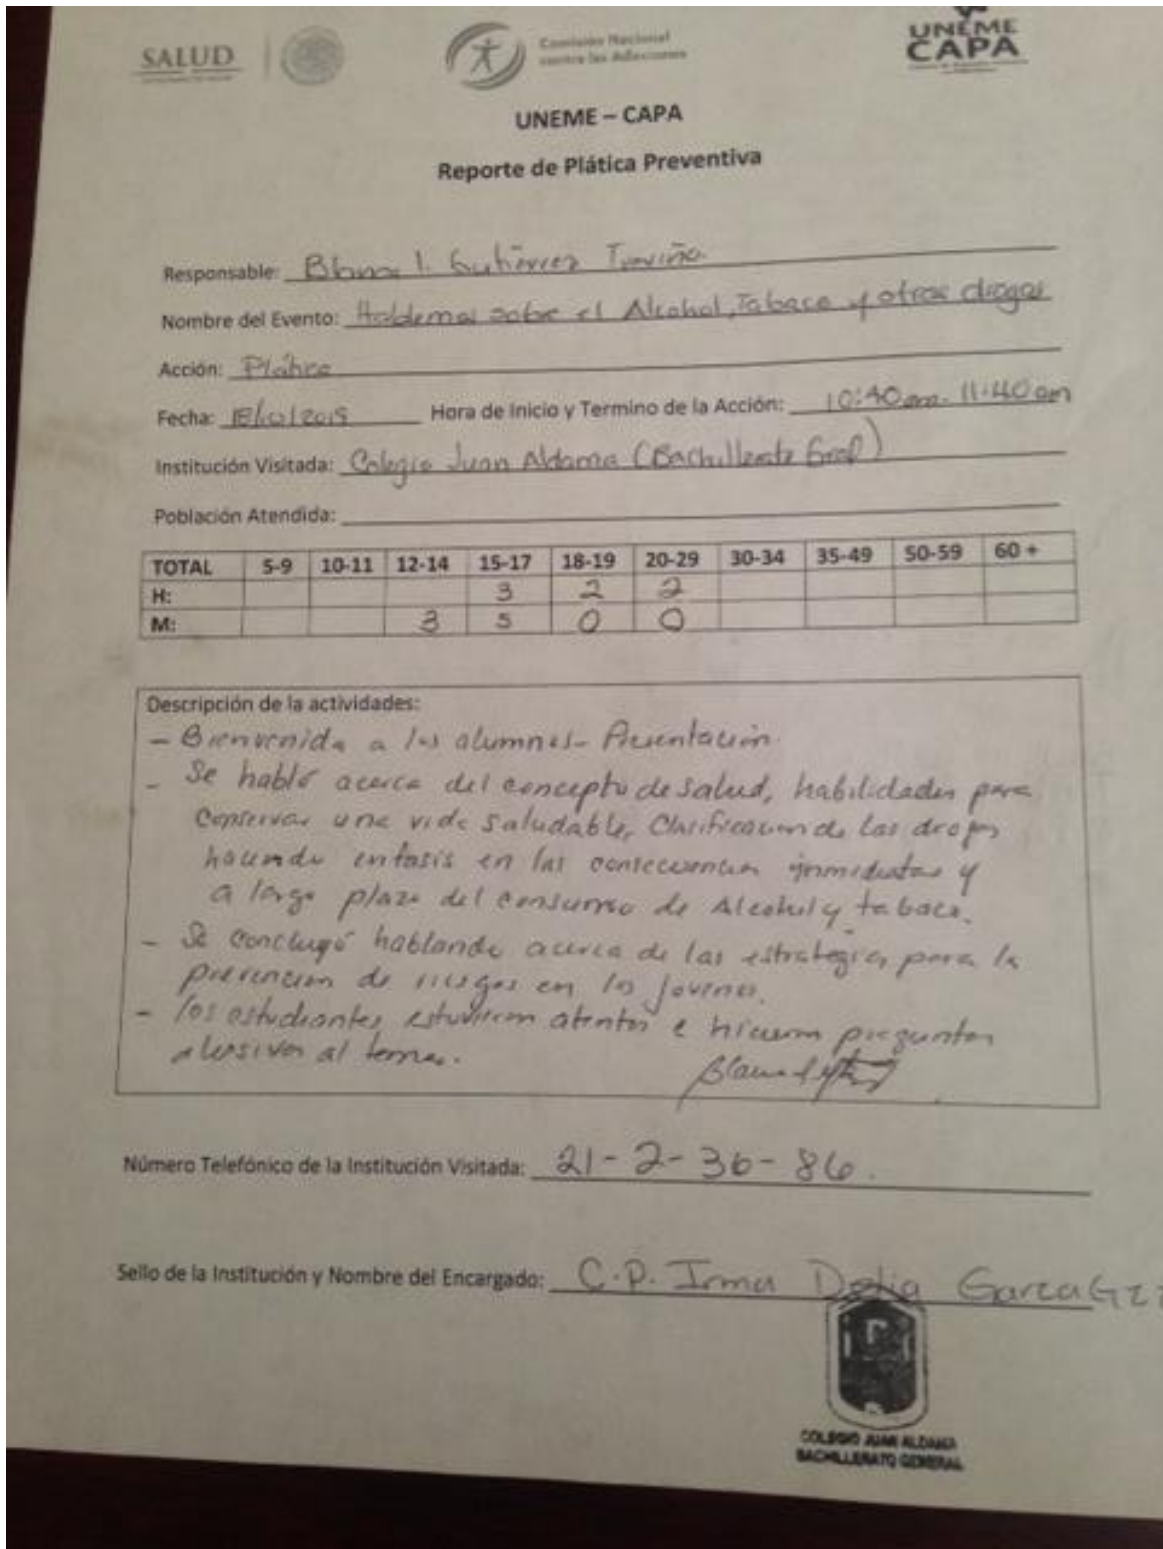 SALUD
Comisión Nacional
contra las Adicciones
UNEME
CAPA
UNEME – CAPA
Reporte de Plática Preventiva
Responsable: Blanca I. Gutiérrez Treviño
Nombre del Evento: Hablemos sobre el Alcohol, Tabaco y otras drogas
Acción: Plática
Fecha: 18/10/2018 Hora de Inicio y Termino de la Acción: 10:40 am. 11:40 am
Institución Visitada: Colegio Juan Aldama (Bachillerato Gral)
Población Atendida:
TOTAL 5-9 10-11 12-14 15-17 18-19 20-29 30-34 35-49 50-59 60 +
H: 3 2 2
M: 3 5 0 0
Descripción de la actividades:
- Bienvenida a los alumnos- Presentación.
- Se habló acerca del concepto de salud, habilidades para
conservar una vida saludable, Clasificacion de las drogas
haciendo enfasis en las consecuencias inmediatas y
a largo plazo del consumo de Alcohol y tabaco.
- Se concluyó hablando acerca de las estrategias para la
prevencion de riesgos en los jovenes.
- los estudiantes estuvieron atentos e hicieron preguntas
alusivas al tema.
Número Telefónico de la Institución Visitada: 21-2-36-86.
Sello de la Institución y Nombre del Encargado: C.P. Irma Delia Garza Gzz
COLEGIO JUAN ALDAMA
BACHILLERATO GENERAL